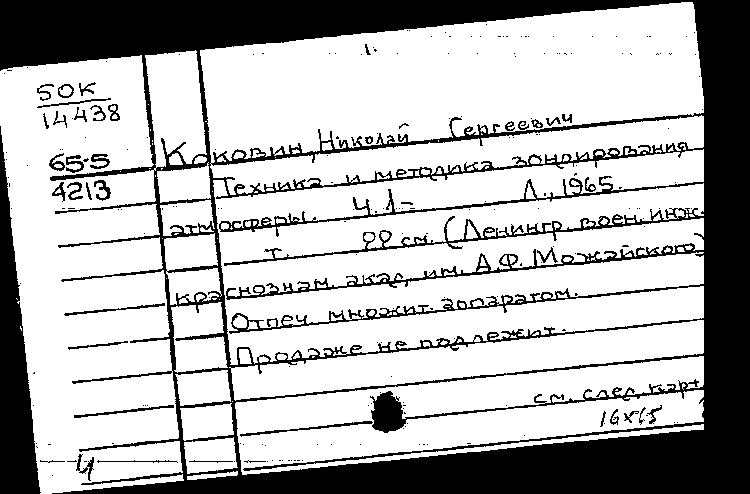 1.
50К
14438
65-5
4213
Коковин, Николай Сергеевич
Техника и методика зондирования
атмосферы. Ч. 1- Л., 1965.
т. 22 см. (Ленингр. воен. инж.
краснознам. акад. им. А.Ф. Можайского)
Отпеч. множит. аппаратом.
Продаже не подлежит.
см. след. карт.
16х65
Ч